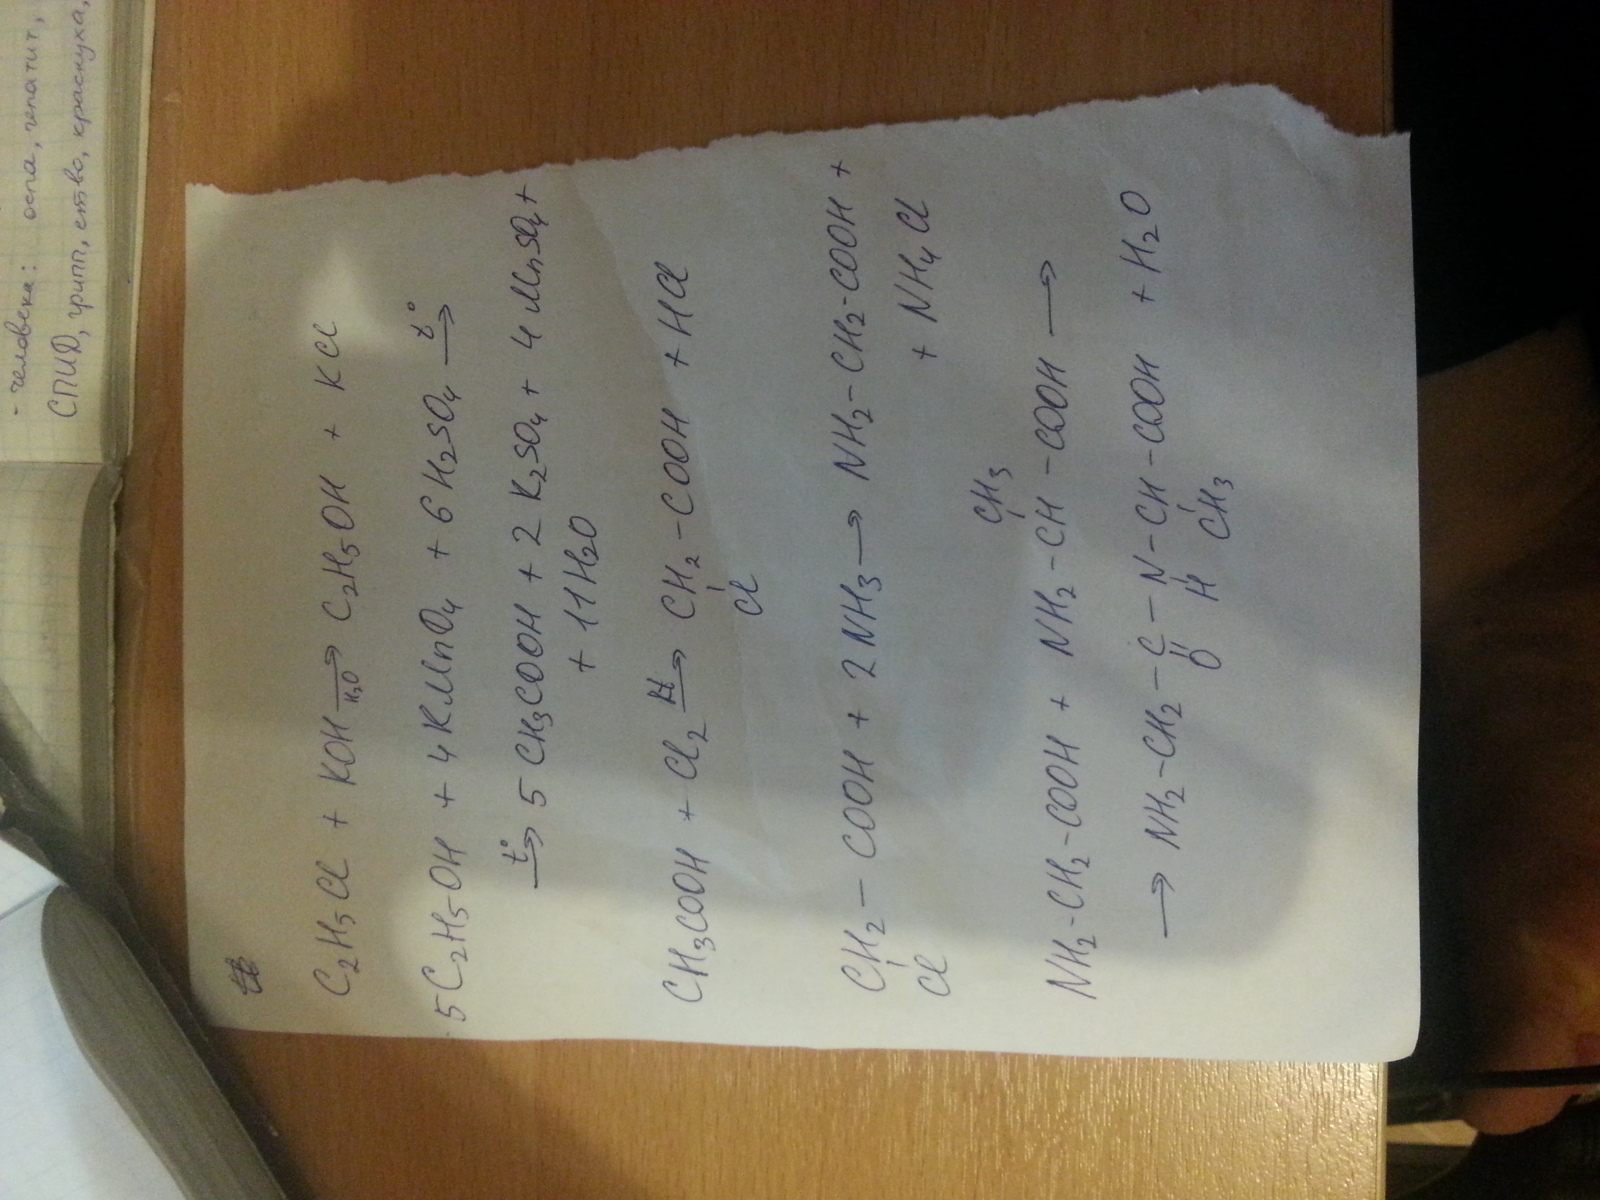 - человека: оспа, гепатит,
СПИД, грипп, краснуха,
C₂H₅Cl + KOH →(H₂O) C₂H₅OH + KCl
5C₂H₅OH + 4KMnO₄ + 6H₂SO₄ →(t°)
→(t°) 5CH₃COOH + 2K₂SO₄ + 4MnSO₄ +
+ 11H₂O
CH₃COOH + Cl₂ → CH₂-COOH + HCl
Cl
CH₂-COOH + 2NH₃ → NH₂-CH₂-COOH +
Cl + NH₄Cl
CH₃
NH₂-CH₂-COOH + NH₂-CH-COOH →
→ NH₂-CH₂-C-N-CH-COOH + H₂O
O H CH₃